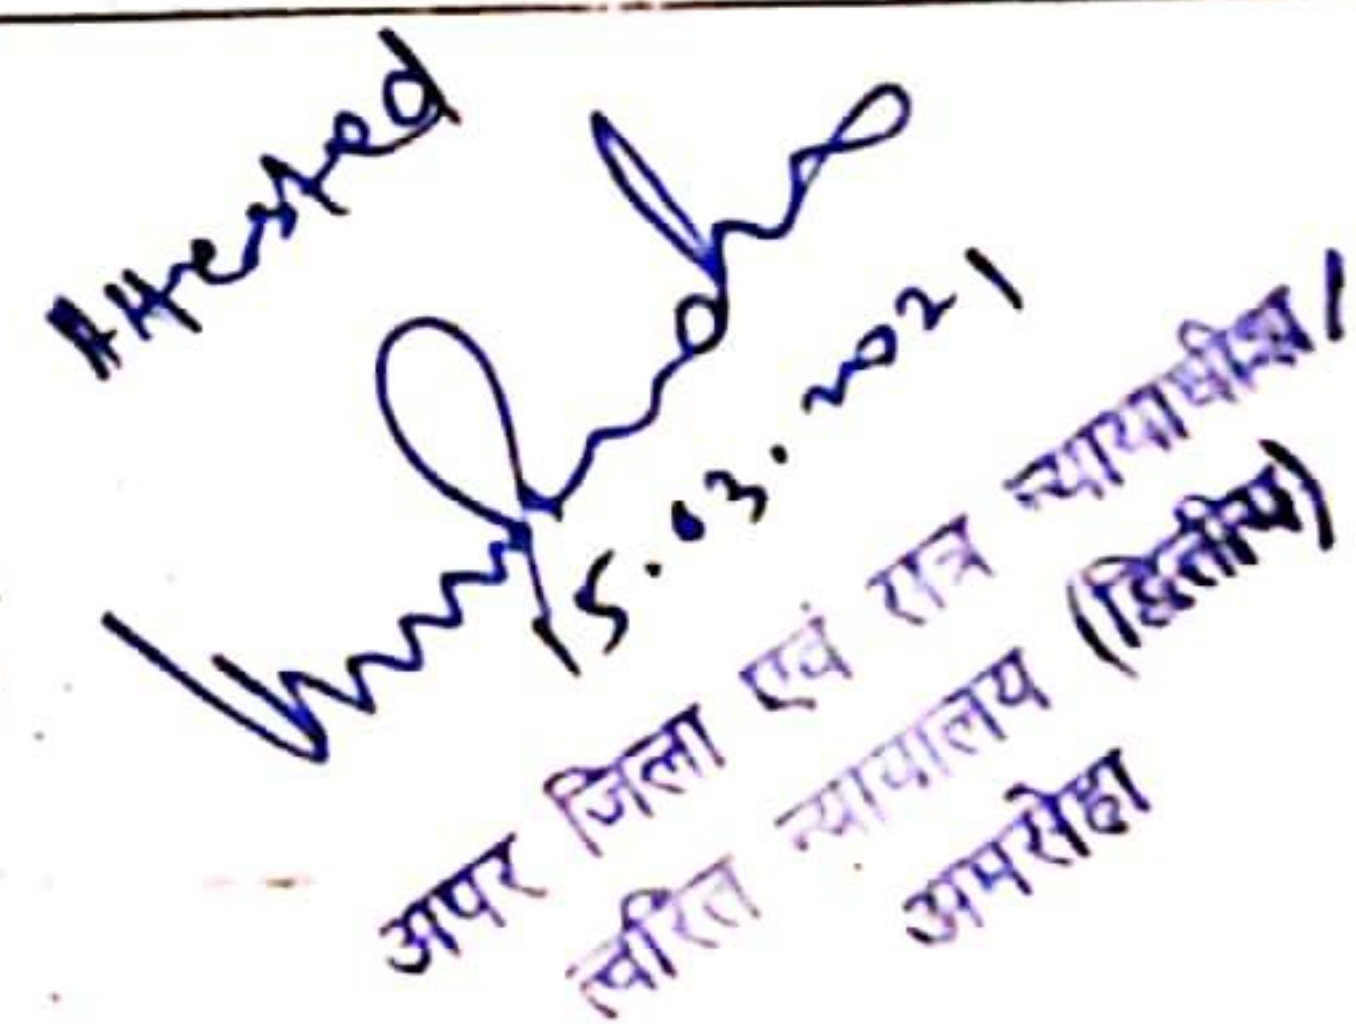 Attested
15.03.2021
अपर जिला एवं सत्र न्यायाधीश/
त्वरित न्यायालय (द्वितीय)
अमरोहा